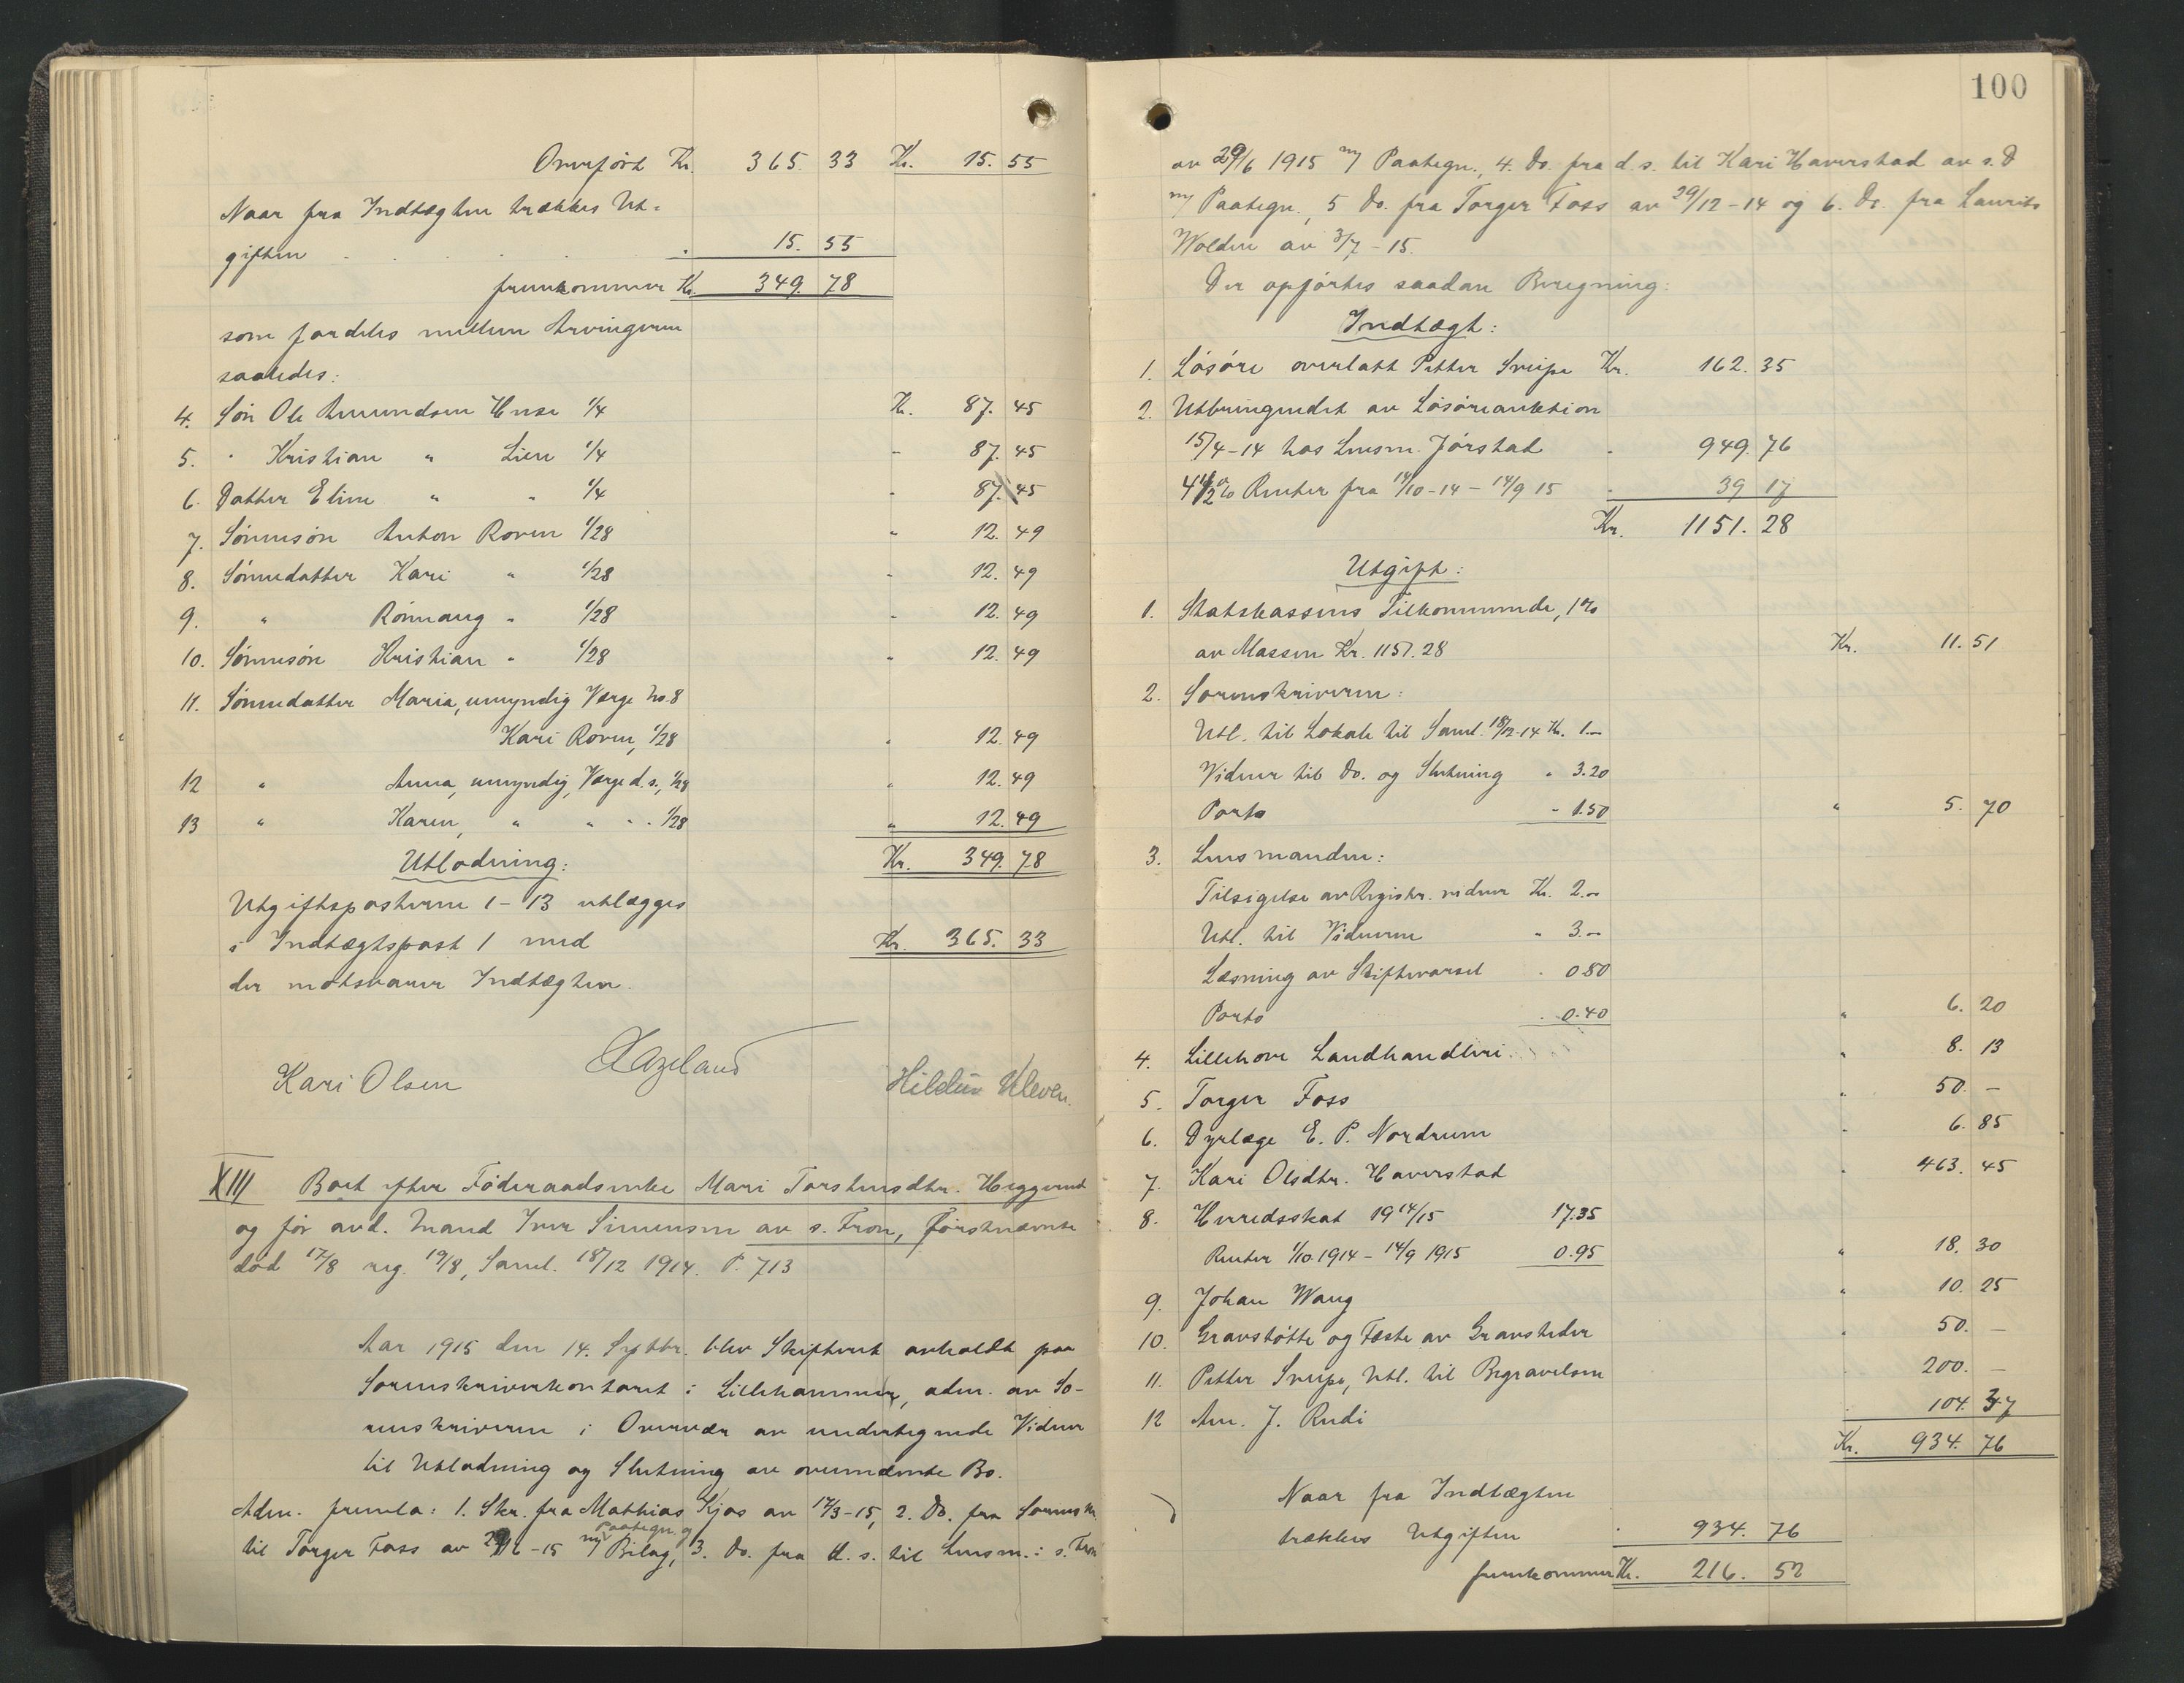 Overført Kr. 365. 33 Kr. 15. 55
Naar fra Indtægten trækkes Ut-
giften . . . . . " 15. 55
fremkommer Kr. 349. 78
som fordeles mellem Arvingerne
saaledes:
4. Søn Ole Amundsen Huse 1/4 Kr. 87. 45
5. " Kristian " Lien 1/4 " 87. 45
6. Datter Eline " " 1/4 " 87. 45
7. Sønnesøn Anton Roven 1/28 " 12. 49
8. Sønnedatter Kari " 1/28 " 12. 49
9. " Rønnaug " 1/28 " 12. 49
10. Sønnesøn Kristian " 1/28 " 12. 49
11. Sønnedatter Maria, umyndig Værge No. 8
Kari Roven, 1/28 " 12. 49
12 " Anna, umyndig, Værge d. s., 1/28 " 12. 49
13 " Karen, " " " 1/28 " 12. 49
Utlodning: Kr. 349. 78
Utgiftsposterne 1 - 13 utlægges
i Indtægtspost 1 med Kr. 365. 33
der motsvarer Indtægten.
Kari Olsen Hildur Kleven.
XIII Boet efter Føderaadsenke Mari Torstensdtr. Heggerud
og før avd. Mand Iver Simensen av s. Fron, førstnævnte
død 17/8 reg. 19/8, Saml. 18/12 1914. P. 713
Aar 1915 den 14. Septbr. blev Skifteret avholdt paa
Sorenskriverkontoret i Lillehammer, adm. av So-
renskriveren i Overvær av undertegnede Vidner
til Utlodning og Slutning av ovennævnte Bo.
Adm. fremla: 1. Skr. fra Mathias Kjos av 17/3-15, 2. Do. fra Sorenskr.
Paategn. og
til Torger Foss av 29/6-15 m/ Bilag, 3. Do. fra d. s. til Lensm. i s. Fron
100
av 29/6 1915 m/ Paategn., 4. Do. fra d. s. til Kari Haverstad av s. D
m/ Paategn., 5 Do. fra Torger Foss av 29/12-14 og 6. Do. fra Laurits
Wolden av 3/7-15.
Der opførtes saadan Beregning:
Indtægt:
1. Løsøre overlatt Petter Sveipe Kr. 162. 35
2. Utbringendet av Løsøreauktion
15/4-14 hos Lensm. Jørstad " 949. 76
4 1/2 % Renter fra 14/10-14 - 14/9 15 " 39 17
Kr. 1151. 28
Utgift:
1. Statskassens Tilkommende, 1%
av Massen Kr. 1151. 28 Kr. 11. 51
2. Sorenskriveren:
Utl. til Lokale til Saml. 18/12-14 Kr. 1.-
Vidner til Do. og Slutning " 3.20
Porto - 1.50 " 5. 70
3. Lensmanden:
Tilsigelse av Registr. vidner Kr. 2.-
Utl. til Vidnerne " 3.-
Læsning av Skiftevarsel " 0.80
Porto " 0.40 " 6. 20
4. Lillehove Landhandleri " 8. 13
5. Torger Foss " 50. -
6. Dyrlæge E. P. Nordrum " 6. 85
7. Kari Olsdtr. Haverstad " 463. 45
8. Herredsskat 19 14/15 17.35
Renter 1/10 1914 - 14/9 1915 0.95 " 18. 30
9. Johan Waug " 10. 25
10. Gravstøtte og Fæste av Gravsteder " 50. -
11. Petter Sveipe, Utl. til Begravelsen " 200. -
12 Am. J. Rudi " 104. 37
Kr. 934. 76
Naar fra Indtægten
trækkes Utgiften " 934. 76
fremkommer Kr. 216. 52